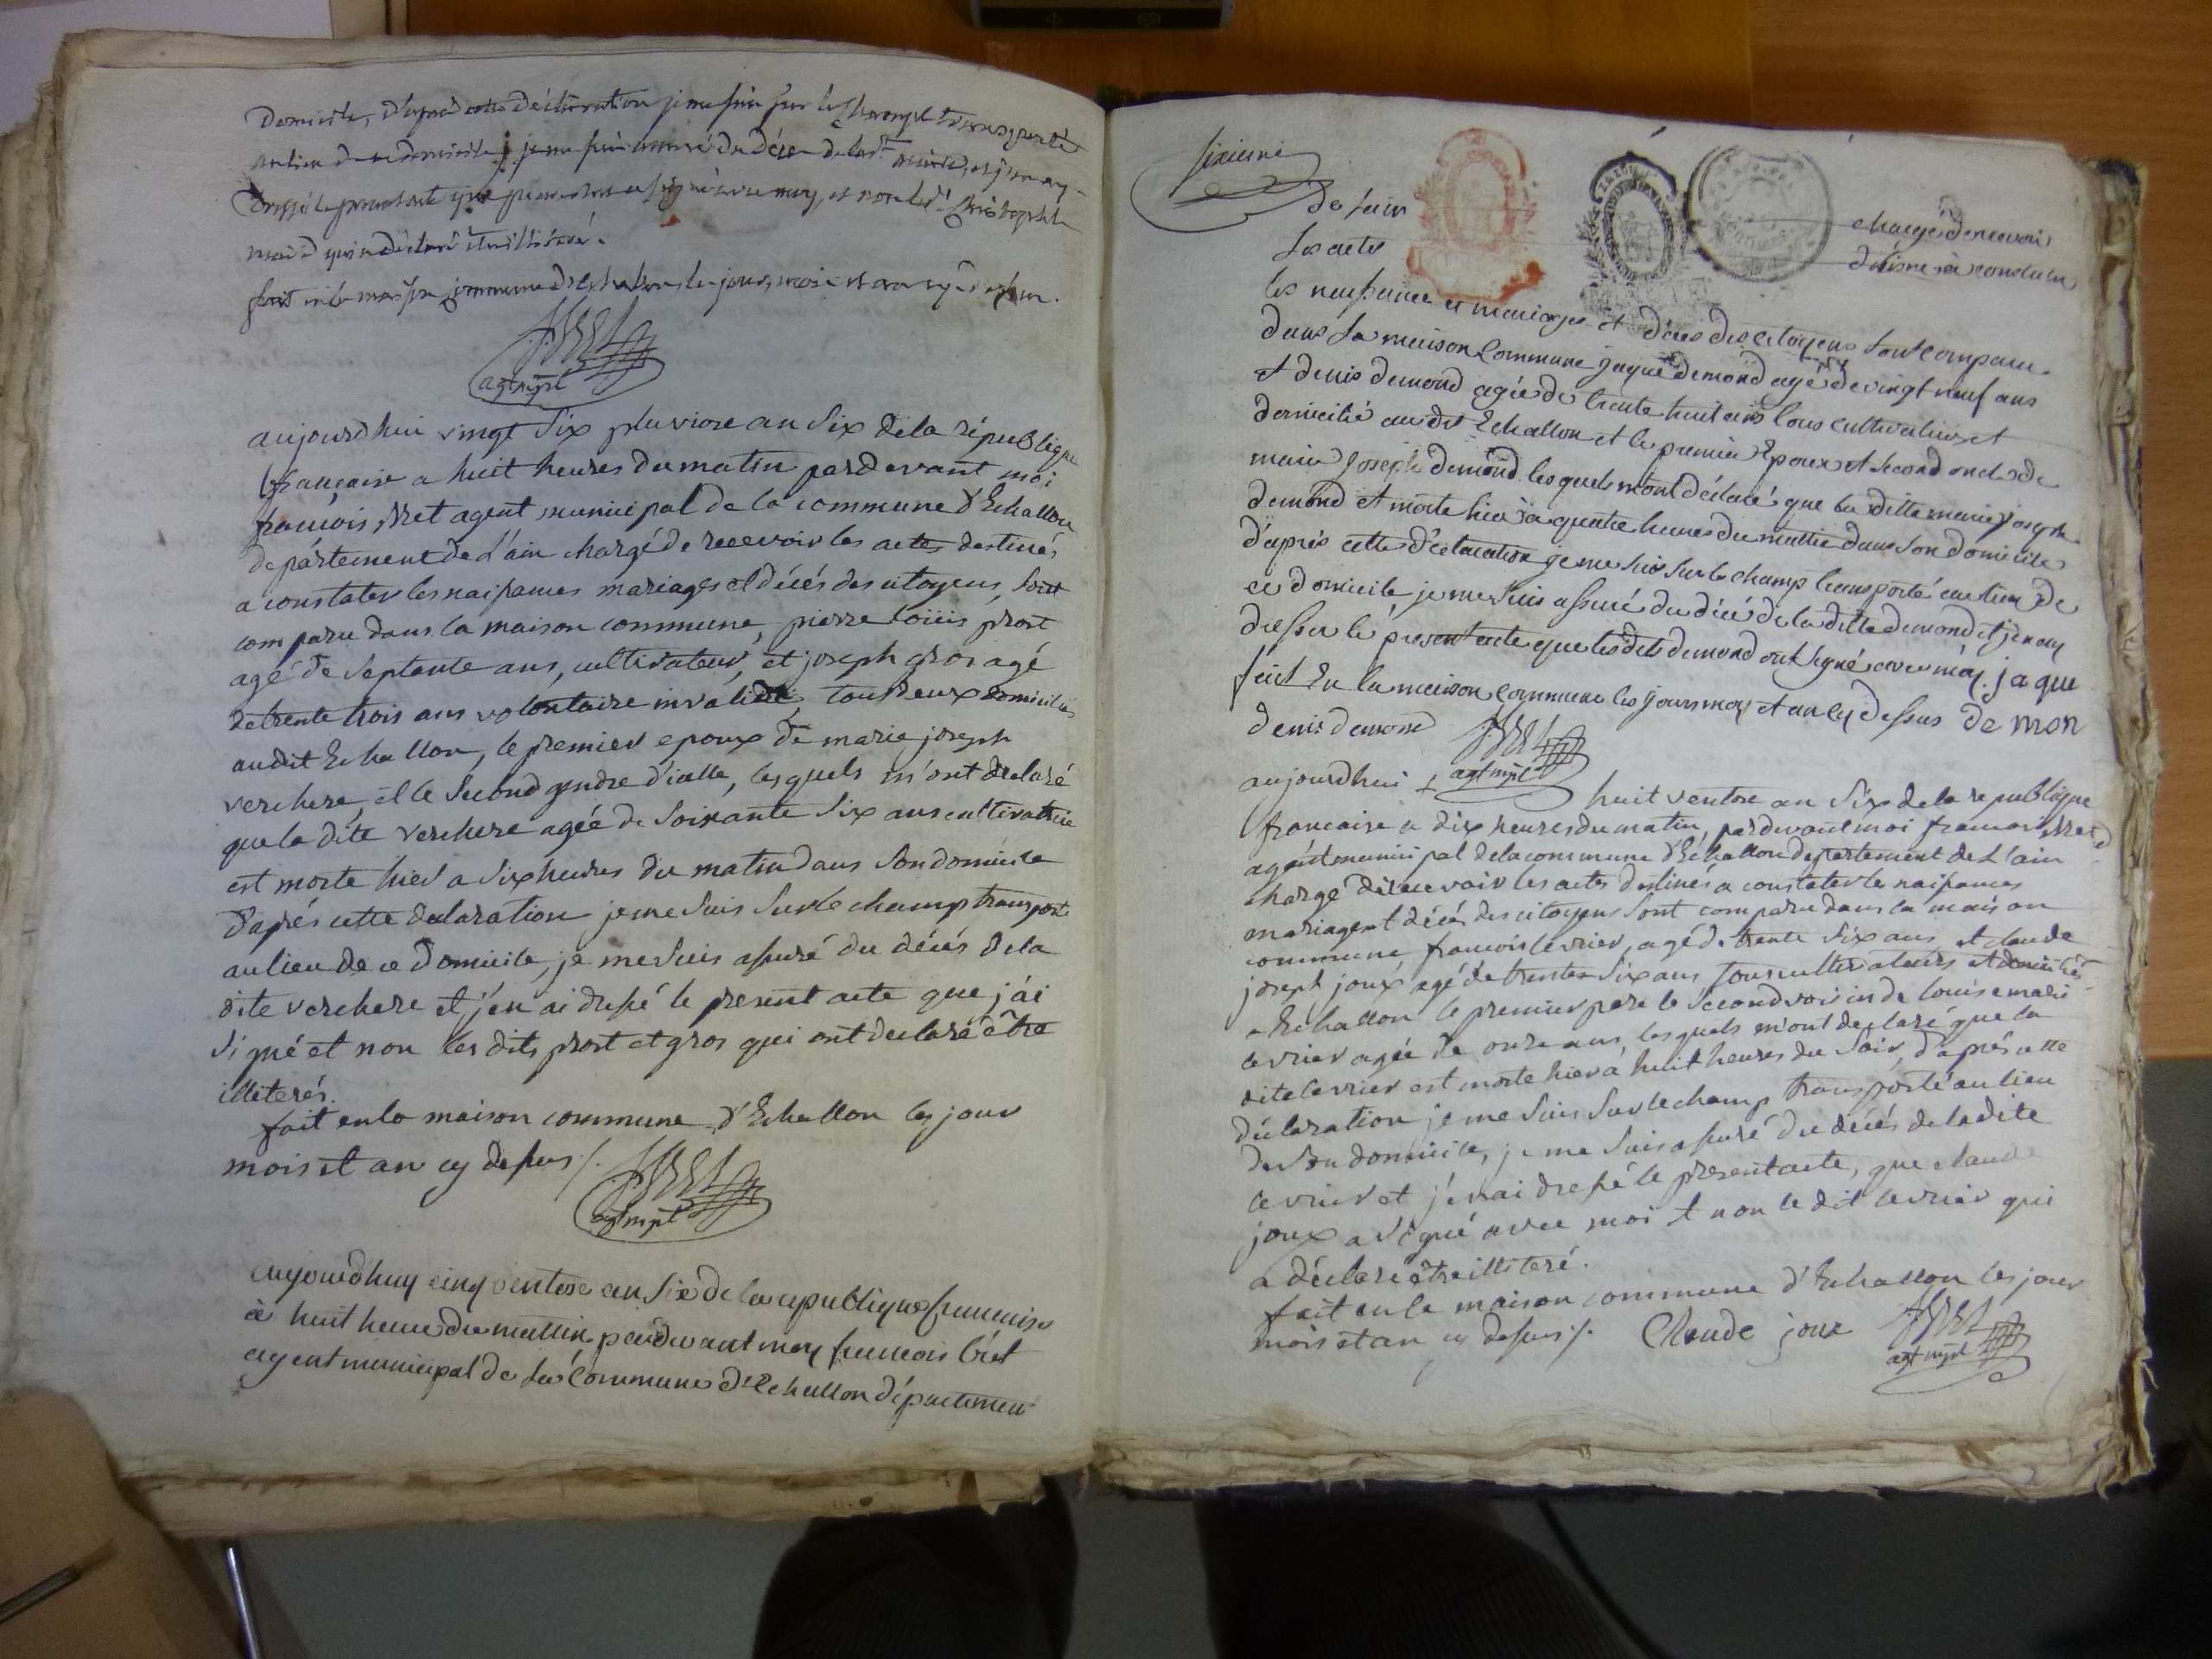 Domicile, d'après cette déclaration je me suis sur le champ transporté
au lieu de ce domicile, je me suis assuré du décès de lad.te
dressé le present acte que avec moy, et non led.t
qui a déclaré être illiteré.
fait en la maison commune d'Echallon les jours, mois et an cy dessus.
agt mpl
aujourdhui vingt six pluviose an six de la république
française a huit heures du matin pardevant moi
françois Bret agent municipal de la commune d'Echallon
département de L'ain chargé de recevoir les actes destinés
a constater les naissances mariages et décés des citoyens, sont
comparu dans la maison commune, pierre loüis prost
agé de septante ans, cultivateur, et joseph gros agé
de trente trois ans volontaire invalide, tous deux domiciliés
audit Echallon, le premier epoux de marie joseph
verchere, et le second gendre d'icelle, lesquels m'ont declaré
que la dite verchere agée de soixante six ans cultivatrice
est morte hier a six heures du matin dans son domicile
d'aprés cette declaration je me suis sur le champ transporté
au lieu de ce domicile, je me suis assuré du décés de la
dite verchere et j'en ai dressé le present acte que j'ai
signé et non les dits prost et gros qui ont declaré être
illiterés.
fait en la maison commune d'Echallon les jour
mois et an cy dessus /.
agt mpl
aujourdhuy cinq ventose an sixe de la republique françaises
à huit heure du mattin pardevant moy francois brét
agent municipal de la commune d'Echallon département
sixieme
de l'ain chargé de recevoir
les actes destinés à constater
les naissance et mariages et déces des citoyens sont comparu
dans la maison commune jaque demond agé de vingt neuf ans
et denis demond agée de trente huit ans tous cultivateurs et
domicilié au dit Echallon et le premier Epoux et second oncle de
marie Joseph demond lesquels m'ont déclaré que la ditte marie joseph
demond et morte hier à quatre heures du mattin dans son domicile
d'aprés cette déclaration je me suis sur le champ transporté au lieu de
ce domicile je me suis assuré du décé de la ditte demond et j'en ay
dresser le présent acte que les dits demond ont signé avec moy. jaque
fait En la maison commune les jours moy et an cy dessus de mon
denis demond
agt mpl
aujourdhui huit ventose an six de la republique
francaise a dix heures du matin, pardevant moi francois Bret
agent municipal de la commune d'Echallon departement de L'ain
chargé de recevoir les actes destinés a constater les naissances
mariages et décés des citoyens sont comparu dans la maison
commune, francois levrier, agé de trente six ans, et claude
joseph joux agé de trente six ans, tous cultivateurs et domiciliés
a Echallon le premier pere le second voisin de louise marie
levrier agée de onze ans, lesquels m'ont declaré que la
dite levrier est morte hier à huit heures du soir, d'aprés cette
déclaration je me suis sur le champ transporté au lieu
de son domicile, je me suis assuré du décés de la dite
levrier et j'en ai dressé le present acte, que claude
joux a signé avec moi et non le dit levrier qui
a déclaré être illiteré.
fait en la maison commune d'Echallon les jour
mois et an cy dessus /. Claude joux
agt mpl